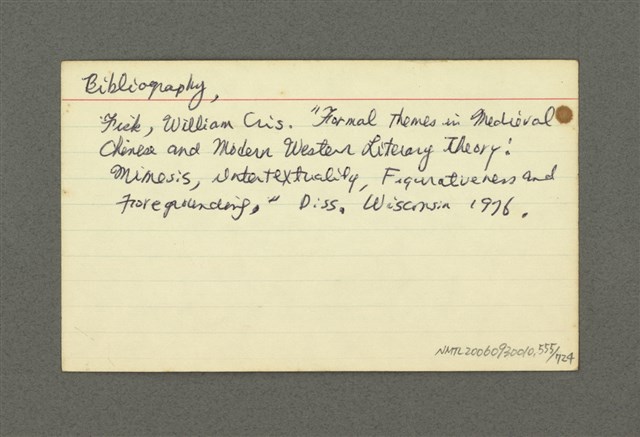 Bibliography,
Fisk, William Cris. "Formal Themes in Medieval
Chinese and Modern Western Literary Theory:
Mimesis, intertextuality, Figurativeness and
Foregrounding," Diss. Wisconsin 1976.
NMTL20060930010,555/724